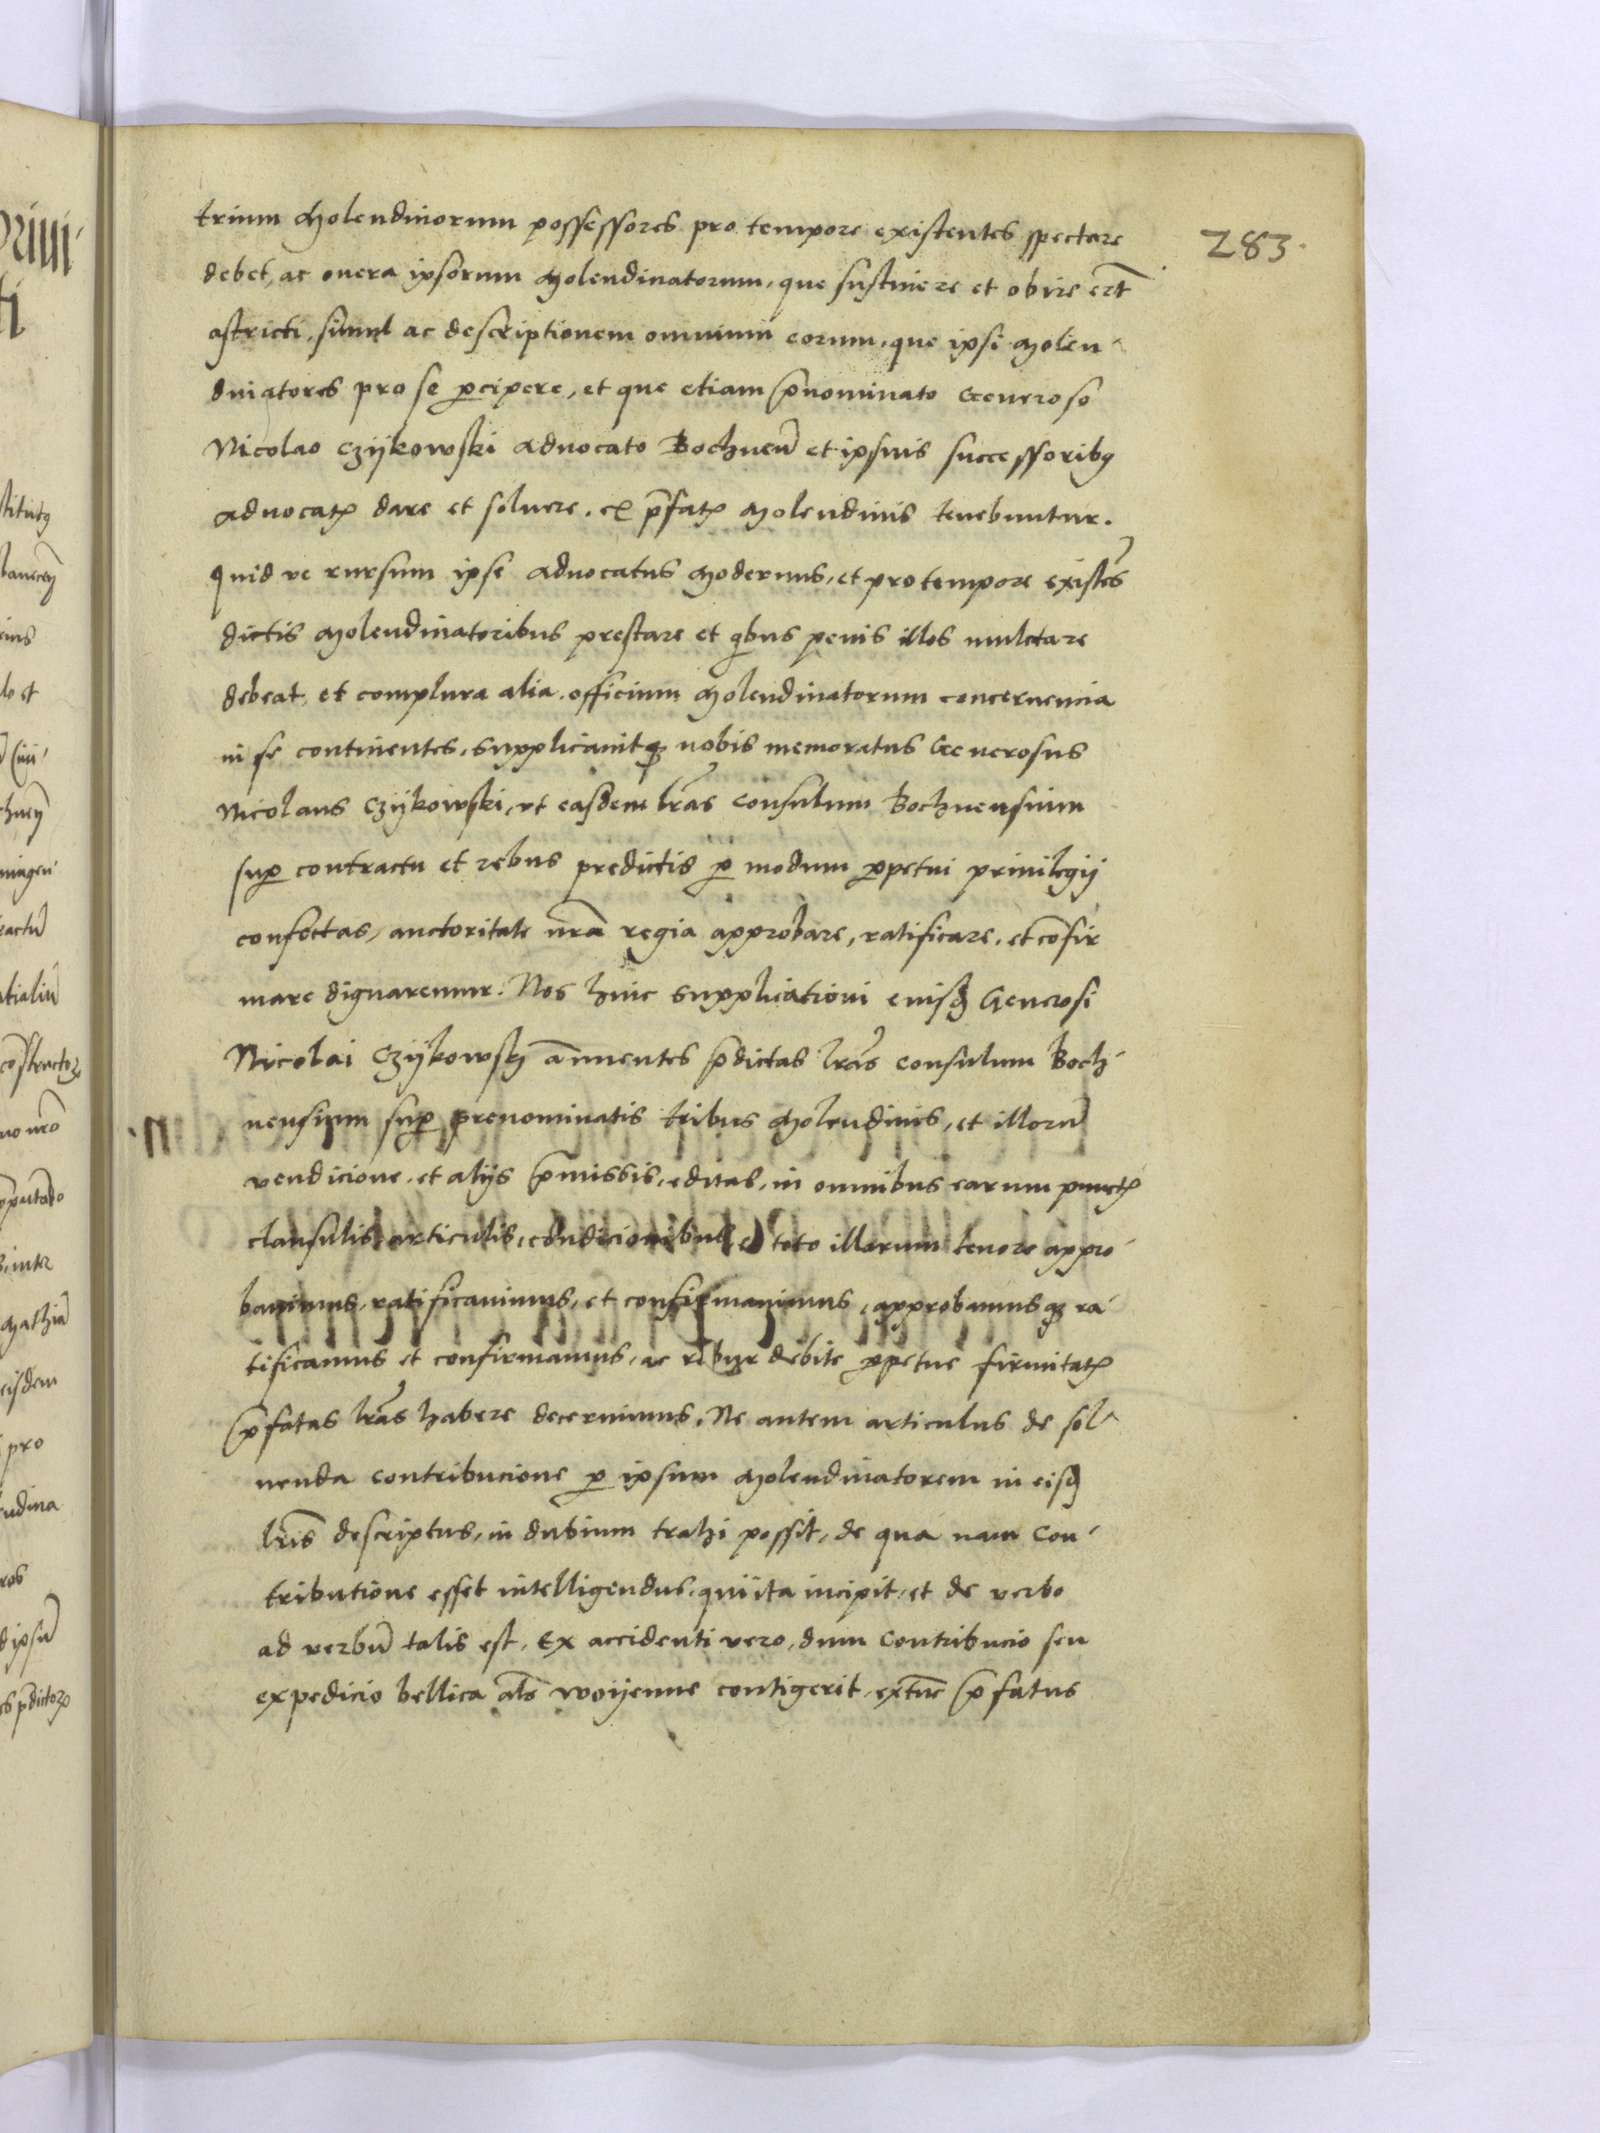 283.
trium Molendinorum possessores pro tempore existentes spectare
debet, ac onera ipsorum Molendinatorum, que sustinere et obire erūt
astricti, simul ac descriptionem omnium eorum, que ipsi Molen-
dinatores pro se ꝑcipere, et que etiam p̄nominato Generoso
Nicolao Czijkowski Advocato Bochneñ et ipsius successoribꝫ
Advocatꝭ dare et soluere, ex p̄fatꝭ Molendinis tenebuntur.
Quid ve rursum ipse Advocatus Modernus, et pro tempore existēs
dictis Molendinatoribus prestare et qͥbus penis illos mulctare
debeat, et complura alia officium Molendinatorum concernencia
in se continentes, supplicauitqꝫ nobis memoratus Generosus
Nicolaus Czijkowski, vt easdem lr̄as Consulum Bochnensium
suꝑ contractu et rebus predictis ꝑ modum ꝑpetui priuilegij
confectas, auctoritate nr̄a regia approbare, ratificare, et cōfir
mare dignaremur. Nos huic supplicationi euisd Generosi
Nicolai Czijkowskij annuentes p̄dictas lr̄as Consulum Boch-
nensium suꝑ prenominatis tribus Molendinis, et illorū
vendicione, et alijs p̄missis, editas, in omnibus earum punctꝭ
clausulis, articulis, condicionibus, et toto illarum tenore appro-
bauimus, ratificauimus, et confirmauimus, approbamusqꝫ ra-
tificamus et confirmamus, ac robur debite ꝑpetue firmitatꝭ
p̄fatas lr̄as habere decernimus. Ne autem articulus de sol-
uenda contribucione ꝑ ipsum Molendinatorem in eisd
lr̄is descriptus, in dubium trahi possit, de qua nam Con-
tributione esset intelligendus, qui ita incipit, et de verbo
ad verbū talis est, Ex accidenti vero, dum Contribucio seu
expedicio bellica als̄ woijenne contigerit, extūc p̄fatus